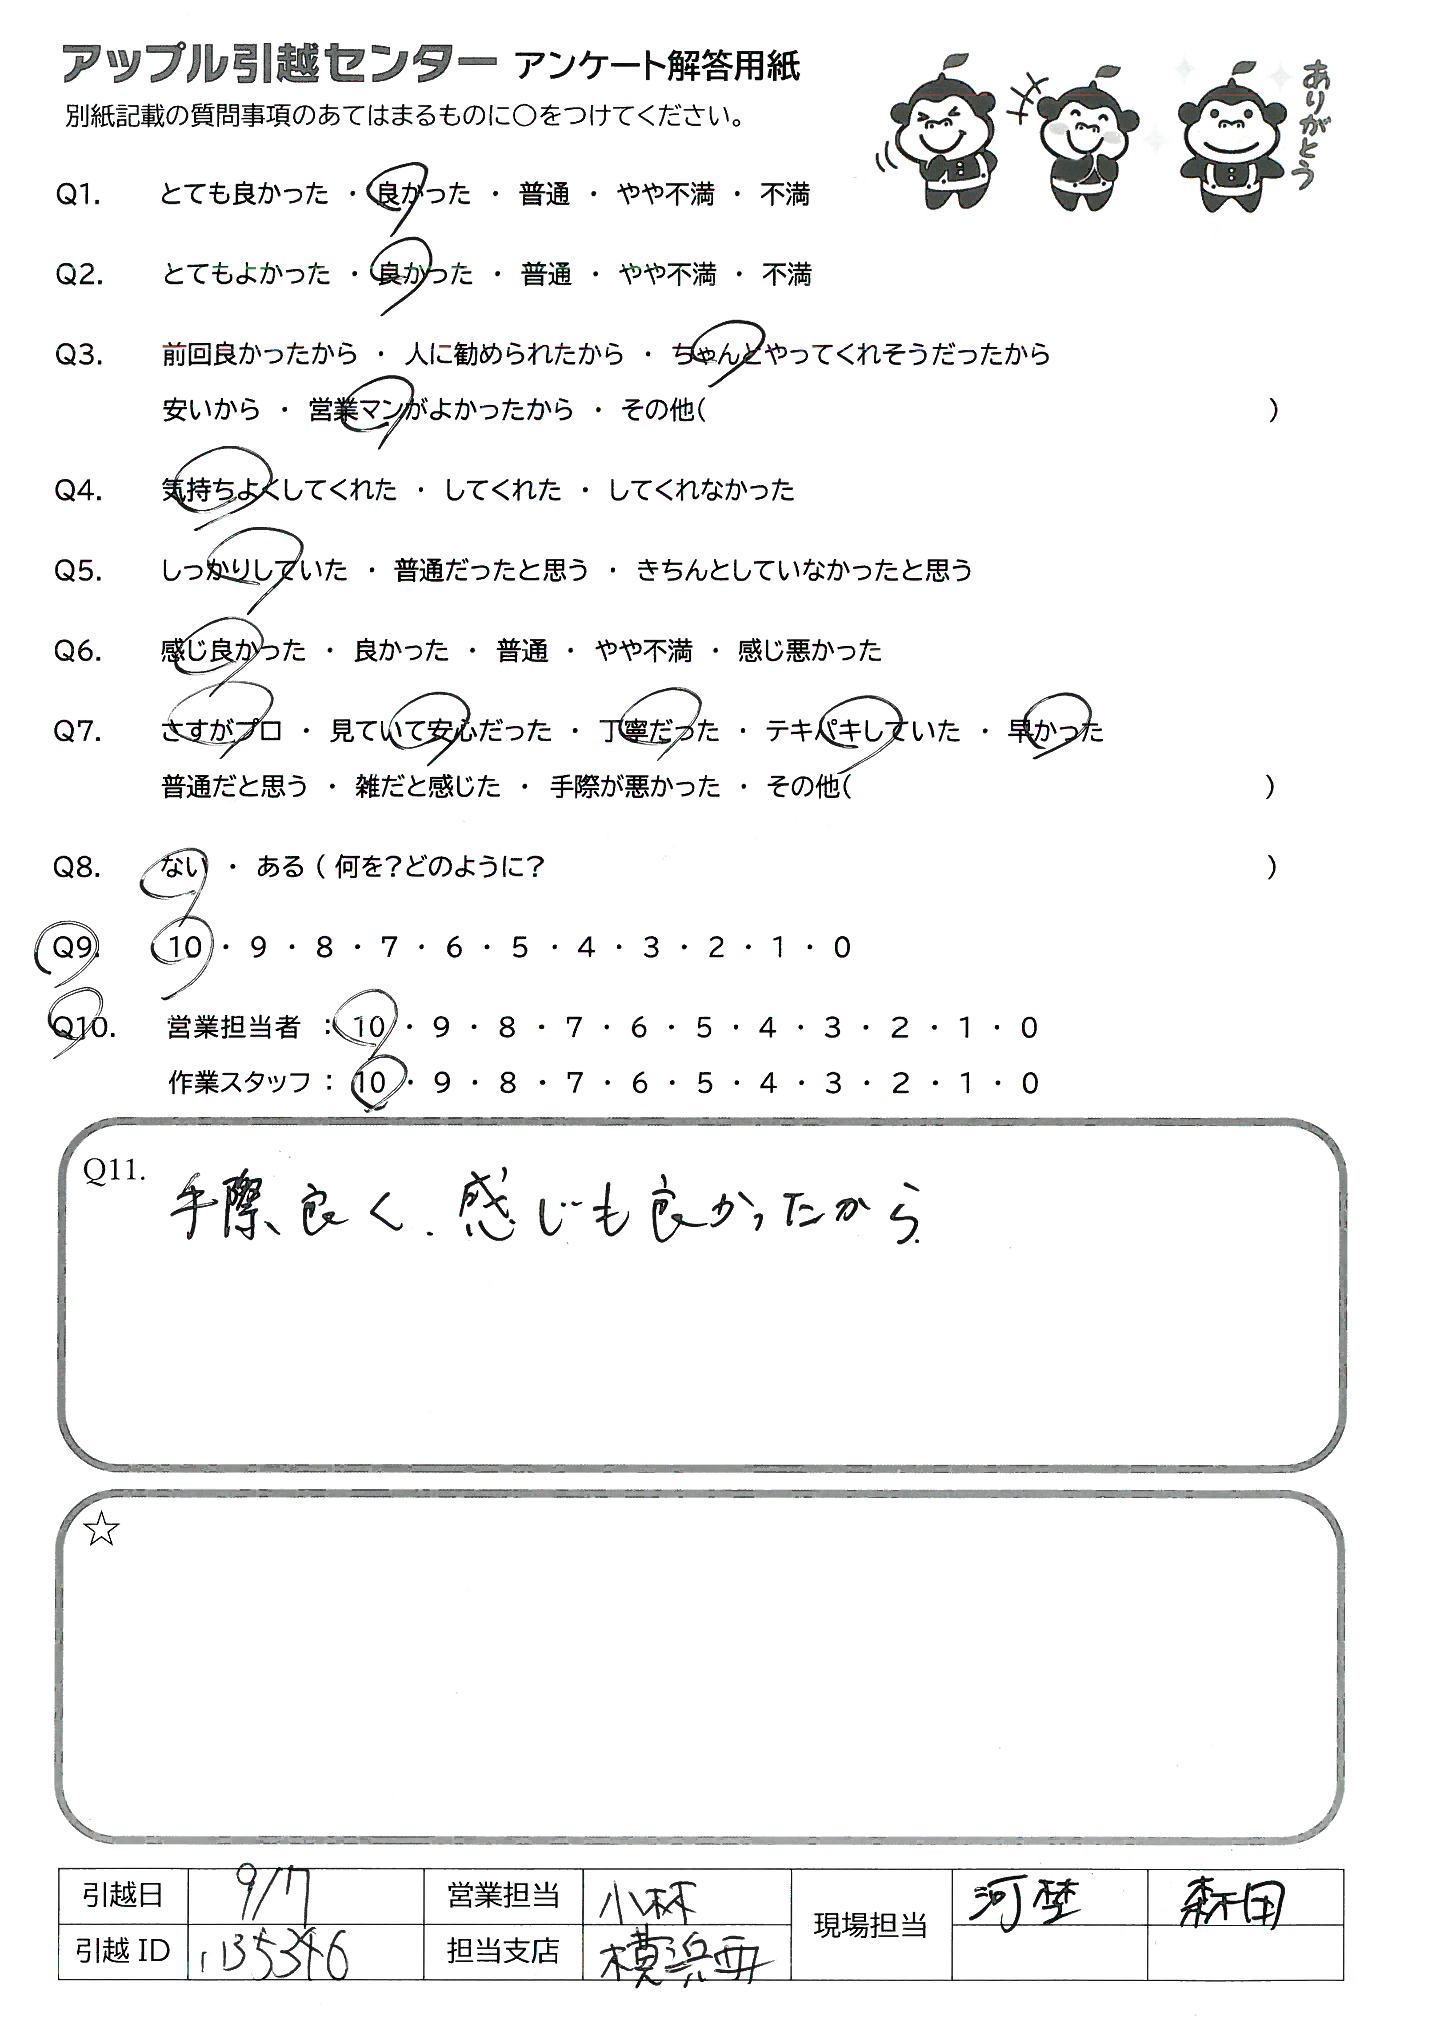 アップル引越センター アンケート解答用紙
別紙記載の質問事項のあてはまるものに○をつけてください。
ありがとう
Q1. とても良かった ・ 良かった ・ 普通 ・ やや不満 ・ 不満
Q2. とてもよかった ・ 良かった ・ 普通 ・ やや不満 ・ 不満
Q3. 前回良かったから ・ 人に勧められたから ・ ちゃんとやってくれそうだったから
安いから ・ 営業マンがよかったから ・ その他( )
Q4. 気持ちよくしてくれた ・ してくれた ・ してくれなかった
Q5. しっかりしていた ・ 普通だったと思う ・ きちんとしていなかったと思う
Q6. 感じ良かった ・ 良かった ・ 普通 ・ やや不満 ・ 感じ悪かった
Q7. さすがプロ ・ 見ていて安心だった ・ 丁寧だった ・ テキパキしていた ・ 早かった
普通だと思う ・ 雑だと感じた ・ 手際が悪かった ・ その他( )
Q8. ない ・ ある ( 何を?どのように? )
Q9. 10 ・ 9 ・ 8 ・ 7 ・ 6 ・ 5 ・ 4 ・ 3 ・ 2 ・ 1 ・ 0
Q10. 営業担当者 : 10 ・ 9 ・ 8 ・ 7 ・ 6 ・ 5 ・ 4 ・ 3 ・ 2 ・ 1 ・ 0
作業スタッフ : 10 ・ 9 ・ 8 ・ 7 ・ 6 ・ 5 ・ 4 ・ 3 ・ 2 ・ 1 ・ 0
Q11. 手際良く、感じも良かったから
☆
引越日 9/7 営業担当 小林 現場担当 河埜 森田
引越 ID 1135346 担当支店 横浜西